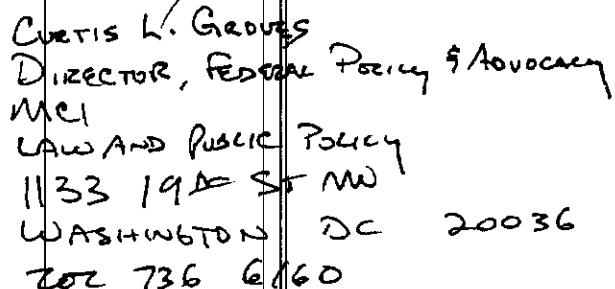 Curtis L. Groves
Director, Federal Policy & Advocacy
MCI
Law and Public Policy
1133 19th St NW
Washington DC 20036
202 736 6160